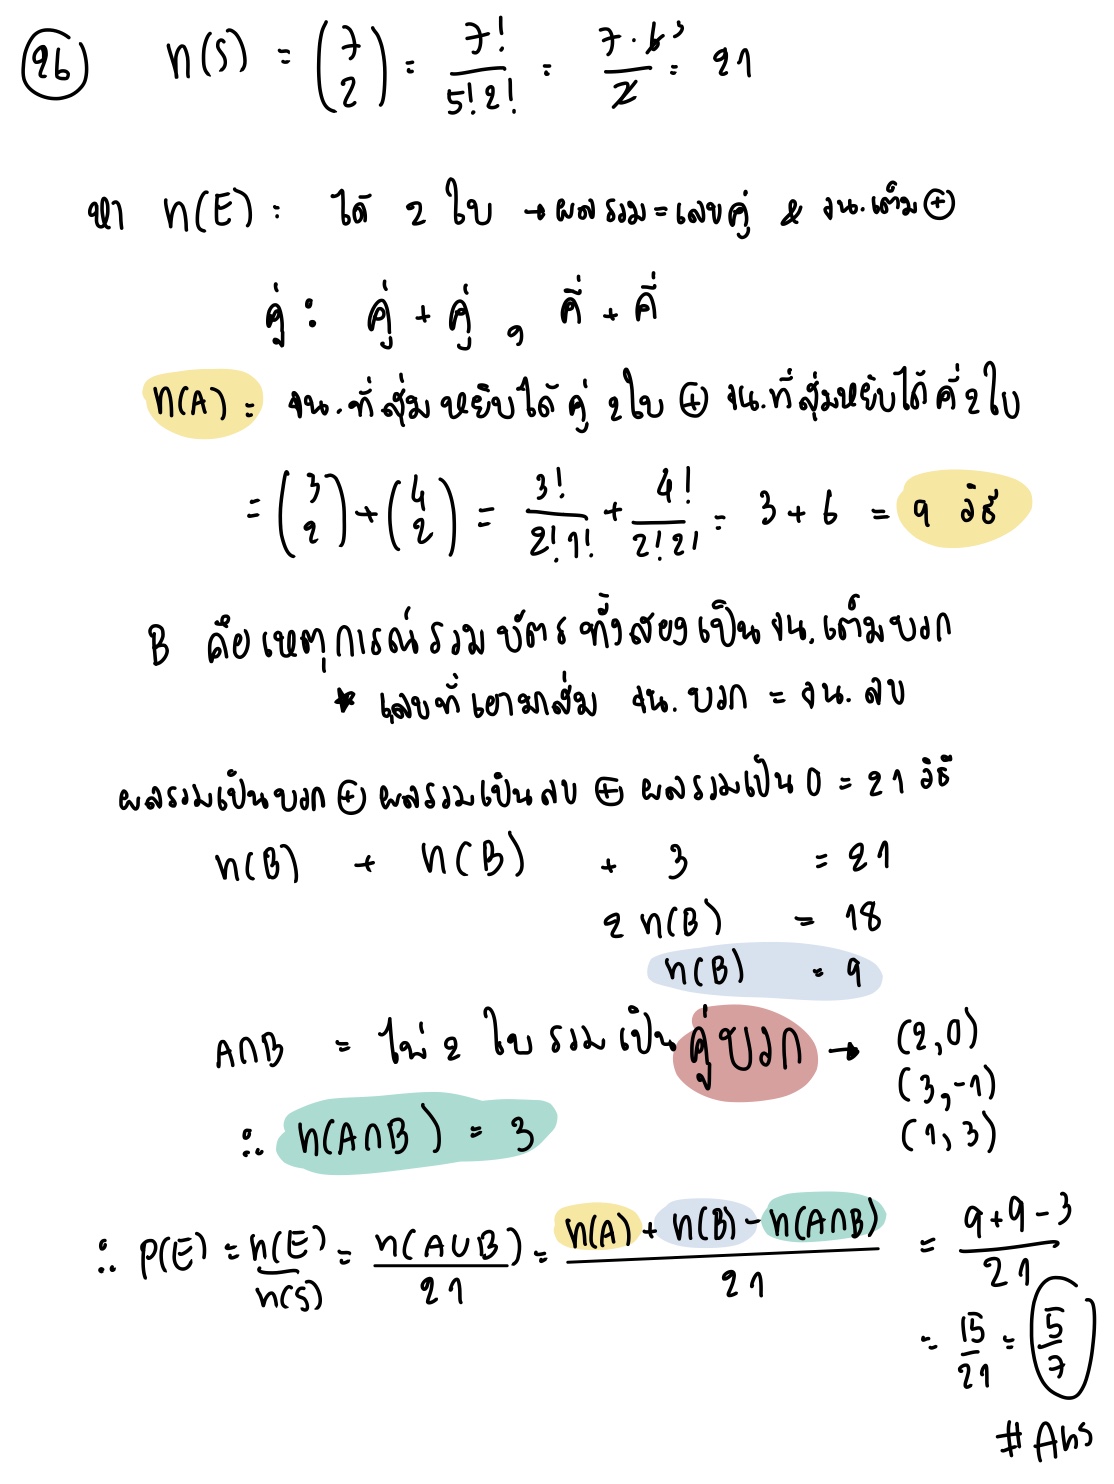 26 n(S) = (7 2) = 7!/5!2! = 7·6³/2 = 21
หา n(E) = ได้ 2 ใบ → ผลรวม = เลขคู่ & จน.เต็ม ⊕
คู่ : คู่ + คู่ , คี่ + คี่
n(A) = จน.ที่สุ่มหยิบได้ คู่ 2ใบ ⊕ จน.ที่สุ่มหยิบได้ คี่ 2ใบ
= (3 2) + (4 2) = 3!/2!1! + 4!/2!2! = 3 + 6 = 9 วิธี
B คือ เหตุการณ์รวมบัตรทั้งสองเป็น จน.เต็มบวก
* เลขที่เอามาสุ่ม จน. บวก = จน. ลบ
ผลรวมเป็นบวก ⊕ ผลรวมเป็นลบ ⊕ ผลรวมเป็น 0 = 21 วิธี
n(B) + n(B) + 3 = 21
2 n(B) = 18
n(B) = 9
A∩B = ไพ่ 2 ใบ รวมเป็น คู่บวก → (2,0)
(3,-1)
(1,3)
∴ n(A∩B) = 3
∴ P(E) = n(E)/n(S) = n(A∪B)/21 = n(A) + n(B) - n(A∩B)/21 = 9+9-3/21
= 15/21 = 5/7
# Ans